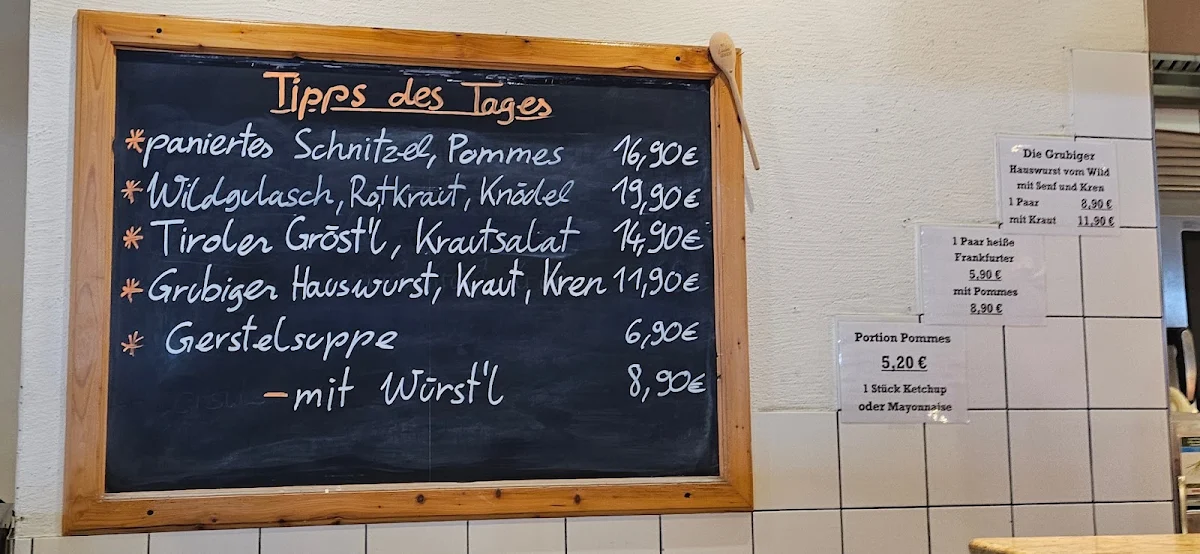 Tipps des Tages
*paniertes Schnitzel, Pommes 16,90€
*Wildgulasch, Rotkraut, Knödel 19,90€
*Tiroler Gröst'l, Krautsalat 14,90€
*Grubiger Hauswurst, Kraut, Kren 11,90€
* Gerstelsuppe 6,90€
-mit Würst'l 8,90€
Die Grubiger
Hauswurst vom Wild
mit Senf und Kren
1 Paar 8,90 €
mit Kraut 11,90 €
1 Paar heiße
Frankfurter
5,90 €
mit Pommes
8,90 €
Portion Pommes
5,20 €
1 Stück Ketchup
oder Mayonnaise